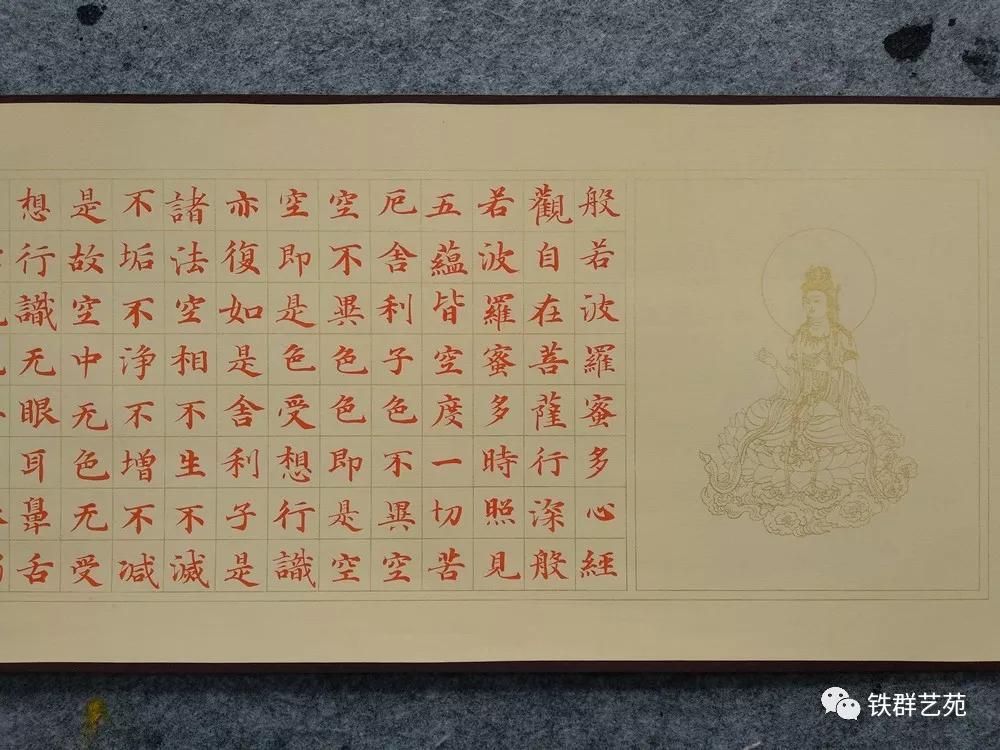 般若波羅蜜多心經
觀自在菩薩行深般
若波羅蜜多時照見
五蘊皆空度一切苦
厄舍利子色不異空
空不異色色即是空
空即是色受想行識
亦復如是舍利子是
諸法空相不生不滅
不垢不净不增不减
是故空中无色无受
想行識无眼耳鼻舌
铁群艺苑